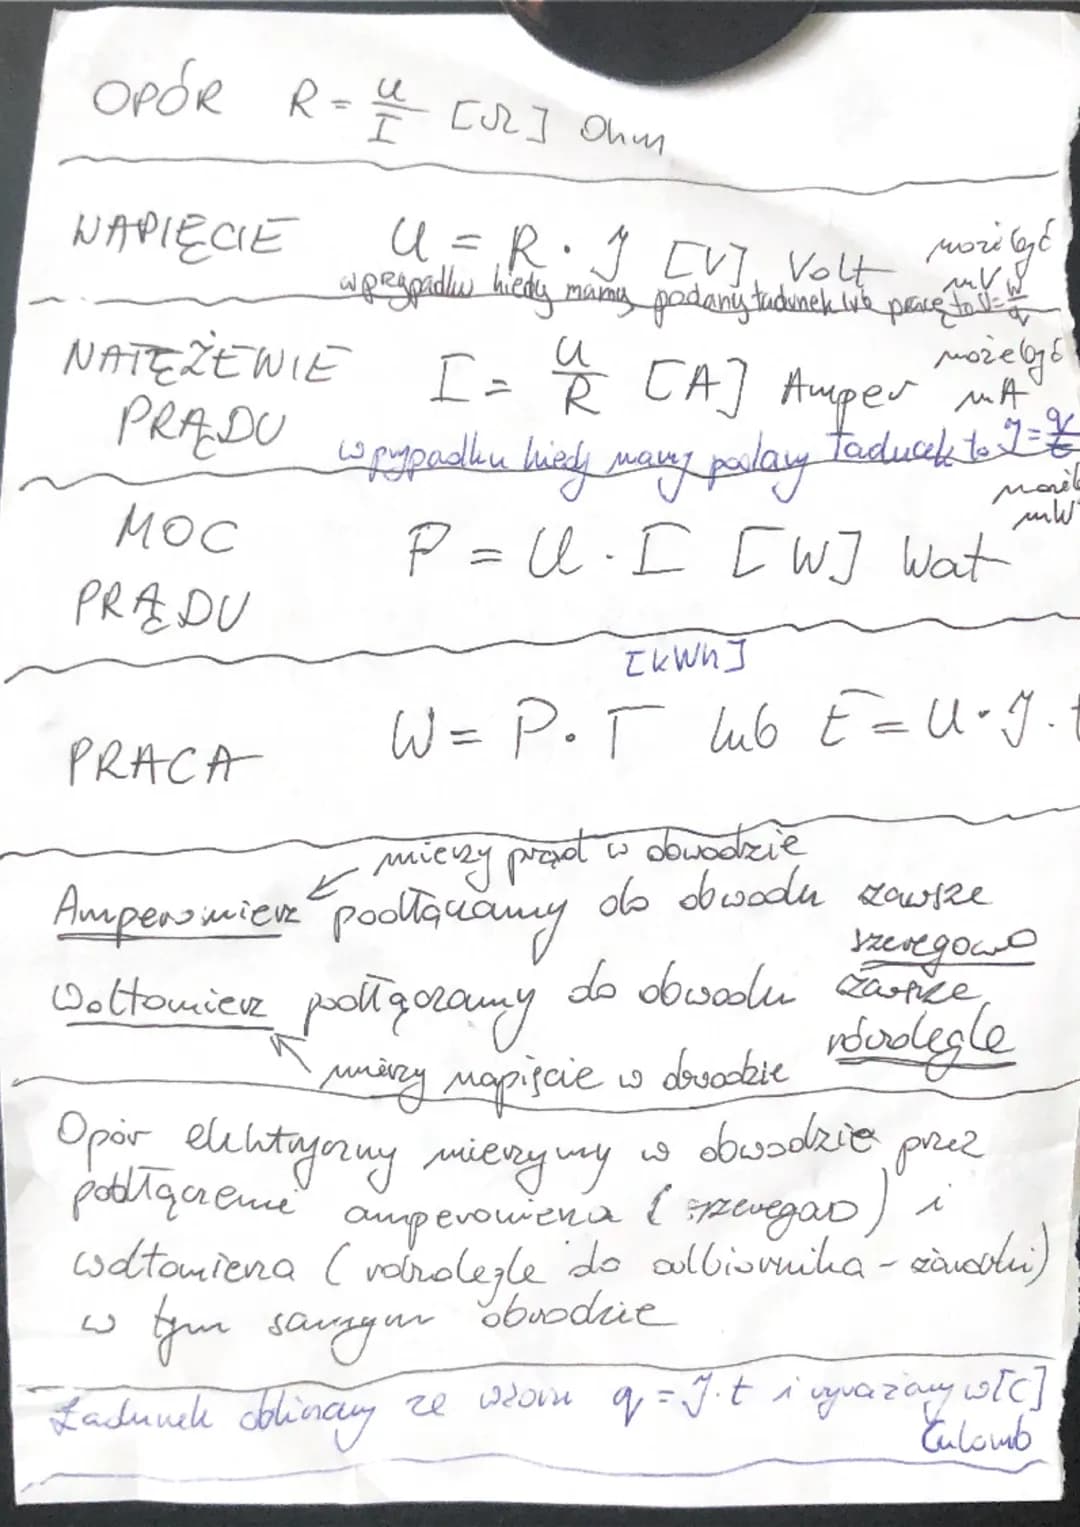 OPÓR R = U/I [Ω] Ohm
NAPIĘCIE U = R · J [V] Volt może być mV
w przypadku kiedy mamy podany ładunek lub pracę to U = W/q
NATĘŻENIE PRĄDU I = U/R [A] Amper może być mA
w przypadku kiedy mamy podany ładunek to J = q/t
MOC PRĄDU P = U · I [W] Wat mW
[kWh]
PRACA W = P · T lub E = U · J · t
mierzy prąd w obwodzie
Amperomierz podłączamy do obwodu zawsze szeregowo
Woltomierz podłączamy do obwodu zawsze równolegle
mierzy napięcie w obwodzie
Opór elektryczny mierzymy w obwodzie przez
podłączenie amperomierza (szeregowo) i
woltomierza (równolegle do odbiornika - żarówki)
w tym samym obwodzie
Ładunek obliczamy ze wzoru q = J · t i wyrażamy w [C]
Culomb